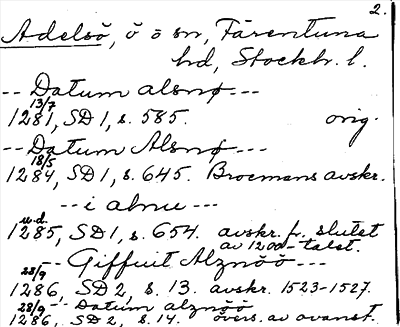 2.
Adelsö, ö o sn, Färentuna
hd, Stockh. l.
-- Datum alsnø ---
13/7
1281, SD 1, s. 585. orig.
-- Datum Alsnø ---
18/5
1284, SD 1, s. 645. Broemans avskr.
-- i alnu ---
u.d.
1285, SD 1, s. 654. avskr. fr. slutet
av 1200-talet.
-- Giffuit Alznöö ---
28/9
1286, SD 2, s. 13. avskr. 1523-1527.
28/9 -- Datum alznöö
1286, SD 2, s. 14. övers. av ovanst.